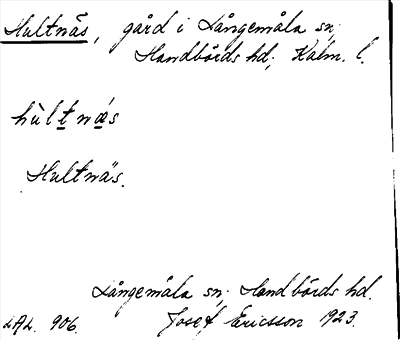 Hultnäs, gård i Långemåla sn;
Handbörds hd; Kalm. l.
hùltnás
Hultnäs.
Långemåla sn; Handbörds hd.
LAL. 906. Josef Ericsson 1923.